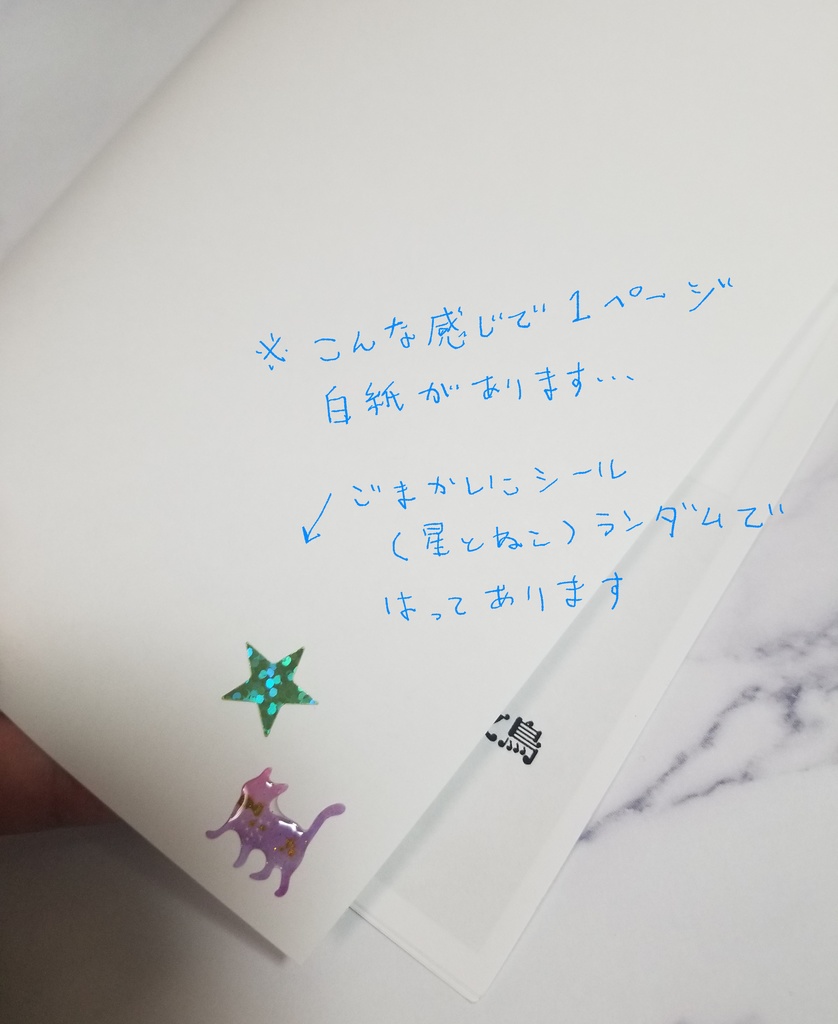 ※ こんな感じで1ページ
白紙があります…
↙ ごまかしにシール
(星とねこ)ランダムで
はってあります
鳥